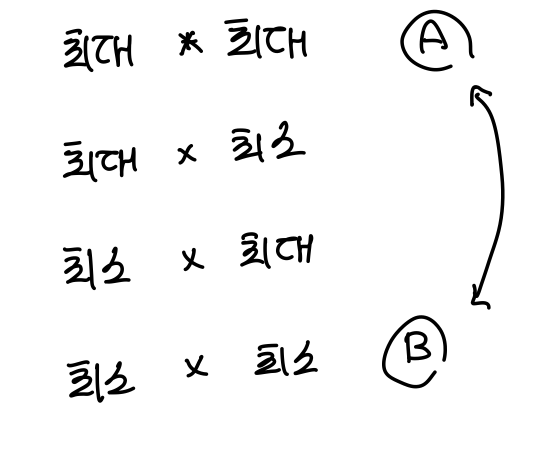 최대 * 최대 A
최대 x 최소
최소 x 최대
최소 x 최소 B